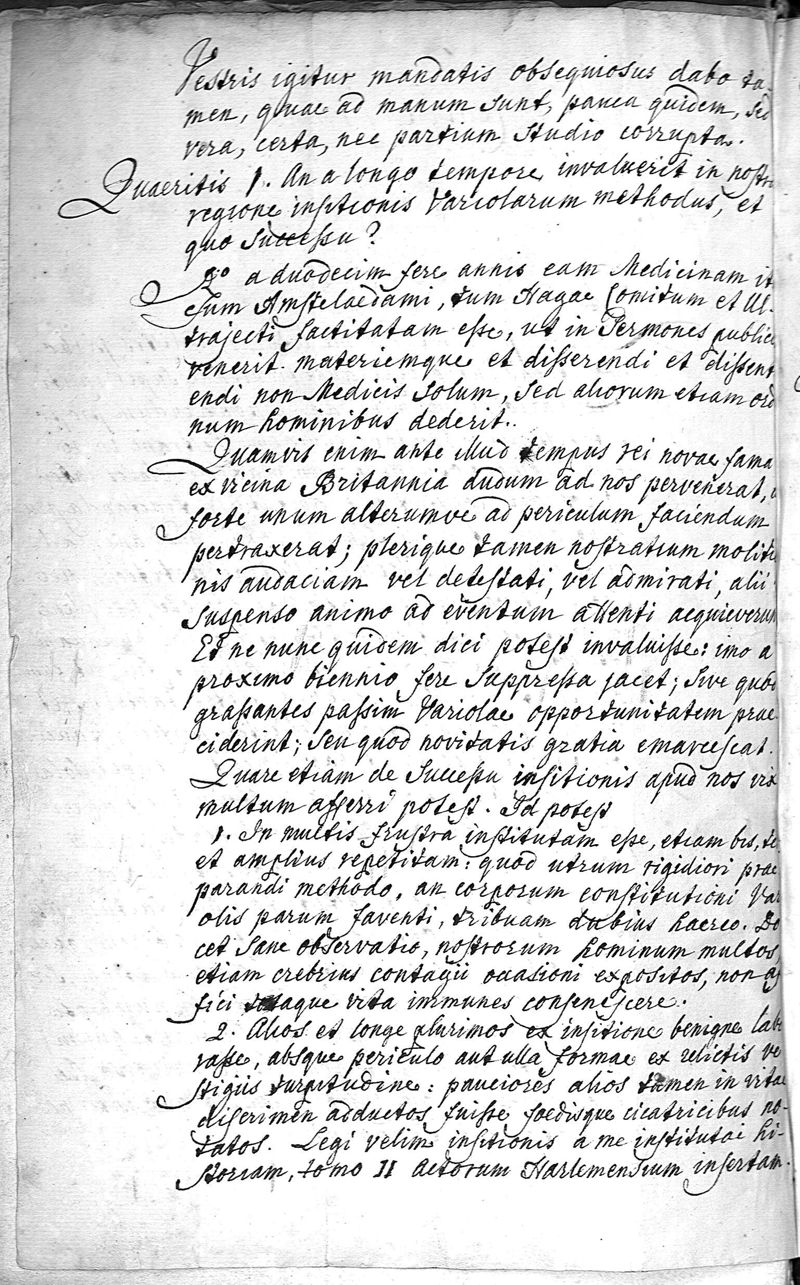 Vestris igitur mandatis obsequiosus dabo ta-
men, quae ad manum sunt, pauca quidem, sed
vera, certa, nec partium studio corrupta.
Quaeritis 1. An a longo tempore invaluerit in nostra
regione insitionis Variolarum methodus, et
quo Successu?
a duodecim fere annis eam Medicinam it
cum Amstelaedami, tum Hagae Comitum et Ul-
trajecti factitatam esse, ut in Sermones publice
venerit materiemque et disserendi et dissent
endi non Medicis solum, sed aliorum etiam ord
num hominibus dederit.
Quamvis enim ante illud tempus rei novae fama
ex vicina Britannia dudum ad nos pervenerat,
forte unum alterumve ad periculum faciendum
pertraxerat; plerique tamen nostratium moliti
nis audaciam vel detestati, vel admirati, alii
suspenso animo ad eventum attenti acquieverun
Et ne nunc quidem dici potest invaluisse: imo a
proximo biennio fere suppressa jacet; Sive quod
grassantes passim Variolae opportunitatem prae
ciderint; seu quod novitatis gratia emarcescat.
Quare etiam de Successu insitionis apud nos vix
multum afferri potest. Id potest
1. In multis frustra institutam esse, etiam bis, te
et amplius repetitam: quod utrum rigidiori prae
parandi methodo, an corporum constitutioni Vari
olis parum faventi, tribuam dubius haereo. Do
cet sane observatio, nostrorum hominum multos
etiam crebrius contagii occasioni expositos, non af
fici totaque vita immunes consenescere.
2. Alios et longe plurimos ex insitione benigne labo
rasse, absque periculo aut ulla formae ex relictis ve
stigiis turpitudine: pauciores alios tamen in vitae
discrimen adductos fuisse foedisque cicatricibus no-
tatos. Legi velim insitionis a me institutae hi-
storiam, tomo II Actorum Harlemensium insertam.